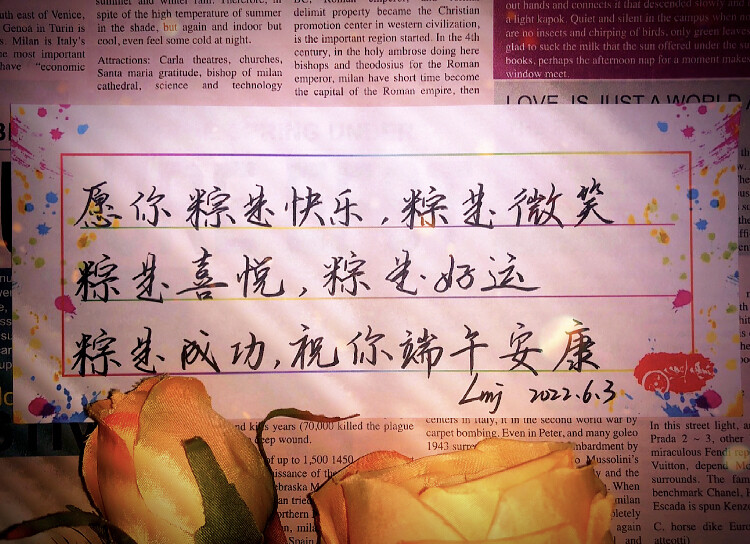 east of Venice,
Genoa in Turin is
s. Milan is Italy's
most important
have "economic
spite of the high temperature of summer
in the shade, but again and indoor but
cool, even feel some cold at night.
Attractions: Carla theatres, churches,
Santa maria gratitude, bishop of milan
cathedral, science and technology
delimit property became the Christian
promotion center in western civilization,
is the important region started. In the 4th
century, in the holy ambrose doing here
bishops and theodosius for the Roman
emperor, milan have short time become
the capital of the Roman empire, then
out hands and connects it that descended slowly and
a light kapok. Quiet and silent in the campus when
are no insects and chirping of birds, only green leaves
glad to suck the milk that the sun offered under the
books, perhaps the afternoon nap for a moment makes
window meet.
LOVE IS JUST A WORLD
愿你粽是快乐,粽是微笑
粽是喜悦,粽是好运
粽是成功,祝你端午安康
Lmj 2022.6.3
years (70,000 killed the plague
deep wound.
of up to 1,500 1450
centers in Italy, it in the second world war by
carpet bombing. Even in Peter, and many goleo
Mussolini's
and the
When
milan
again
In this street light,
Prada 2 ~ 3, other
miraculous Fendi
Vuitton,
surroundings. The
benchmark Chanel,
Escada is spun Kenzo
C. horse dike